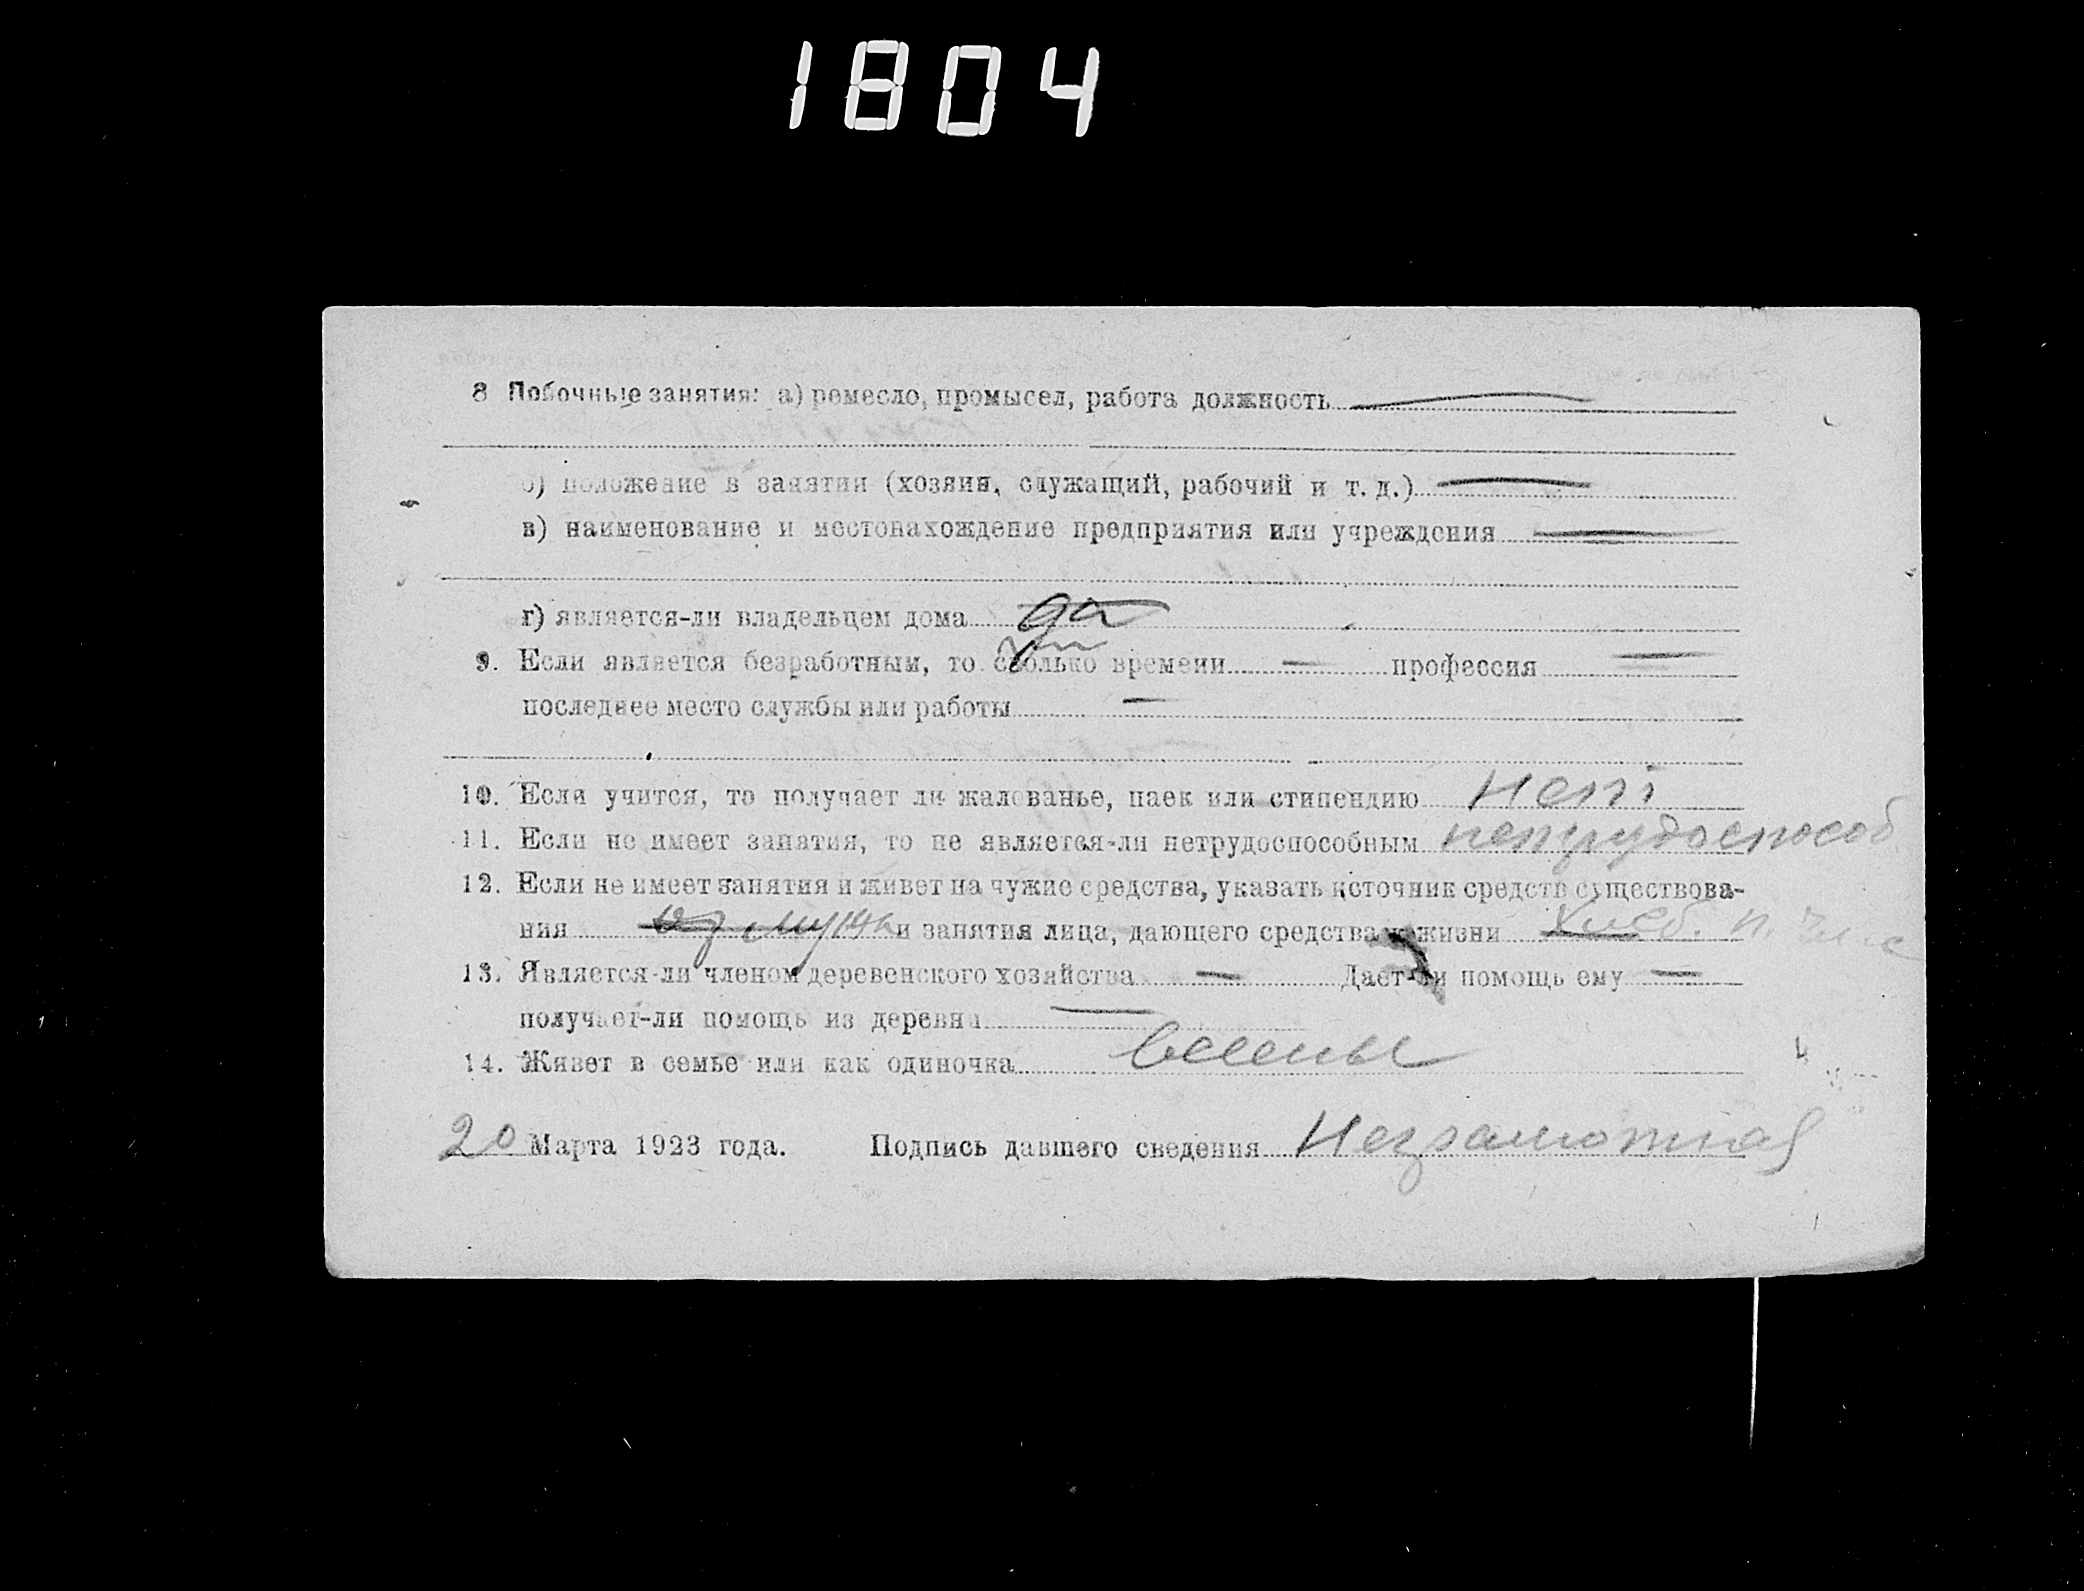 1804
8 Побочные занятия: а) ремесло, промысел, работа должность
б) положение в занятии (хозяин, служащий, рабочий и т. д.)
в) наименование и местонахождение предприятия или учреждения
г) является-ли владельцем дома да
9. Если является безработным, то сколько времени — профессия —
последнее место службы или работы —
10. Если учится, то получает ли жалованье, паек или стипендию нет
11. Если не имеет занятия, то не является-ли нетрудоспособным нетрудоспособ
12. Если не имеет занятия и живет на чужие средства, указать источник средств существова-
ния муж и занятия лица, дающего средства к жизни Хлеб.
13. Является-ли членом деревенского хозяйства — Дает-ли помощь ему —
получает-ли помощь из деревни —
14. Живет в семье или как одиночка всемье
20 Марта 1923 года. Подпись давшего сведения